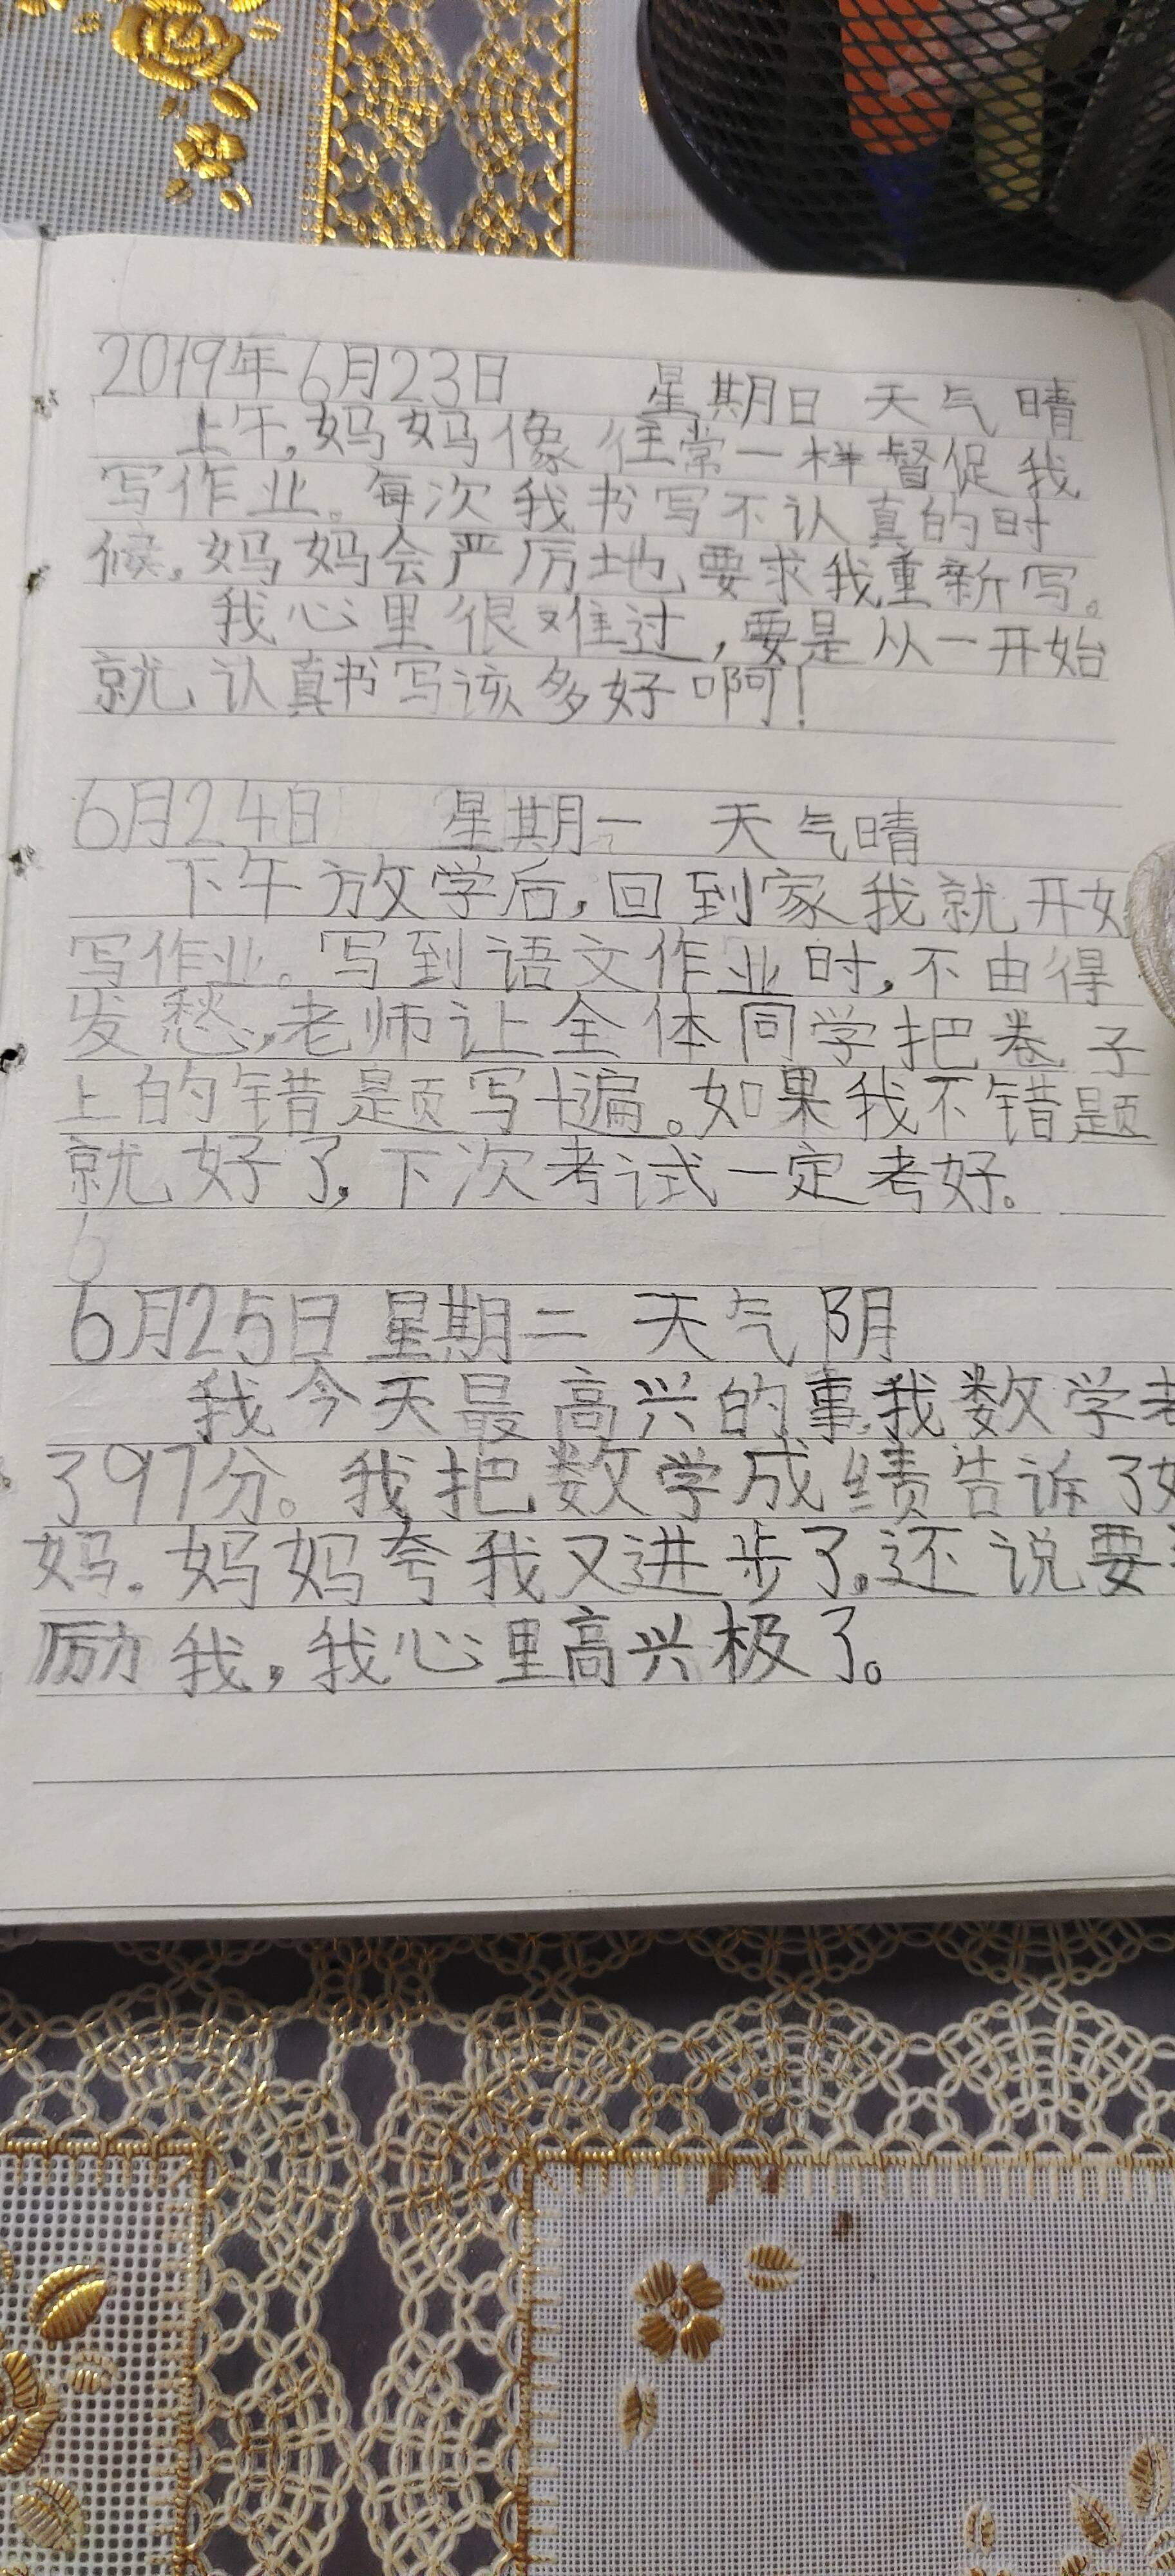 2019年6月23日 星期日 天气 晴
上午,妈妈像往常一样督促我
写作业。每次我书写不认真的时
候,妈妈会严厉地要求我重新写。
我心里很难过,要是从一开始
就认真书写该多好啊!
6月24日 星期一 天气晴
下午放学后,回到家我就开始
写作业。写到语文作业时,不由得
发愁,老师让全体同学把卷子
上的错题写十遍。如果我不错题
就好了,下次考试一定考好。
6
6月25日 星期二 天气 阴
我今天最高兴的事,我数学考
了97分。我把数学成绩告诉了妈
妈.妈妈夸我又进步了,还说要
励我,我心里高兴极了。